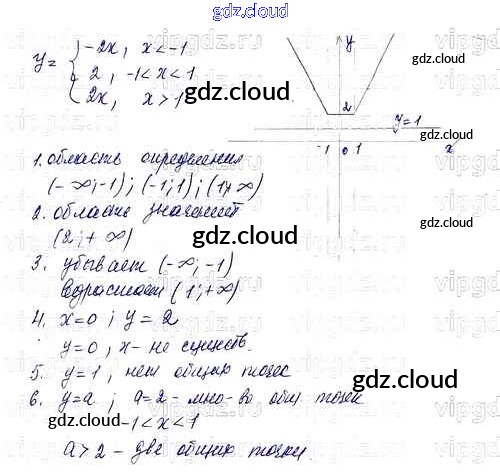 gdz.cloud
y = { -2x, x < -1
2, -1 < x < 1
2x, x > 1
y
2
y = 1
-1 0 1 x
1. область определения
(-∞; -1); (-1; 1); (1; +∞)
2. область значений
(2; +∞)
3. убывает (-∞; -1)
возрастает (1; +∞)
4. x = 0; y = 2
y = 0, x - не существ.
5. y = 1, нет общих точек
6. y = a; a = 2 - мно-во общ. точек
-1 < x < 1
a > 2 - две общие точки.
gdz.cloud
gdz.cloud
gdz.cloud
gdz.cloud
gdz.cloud
gdz.cloud
gdz.cloud
gdz.cloud